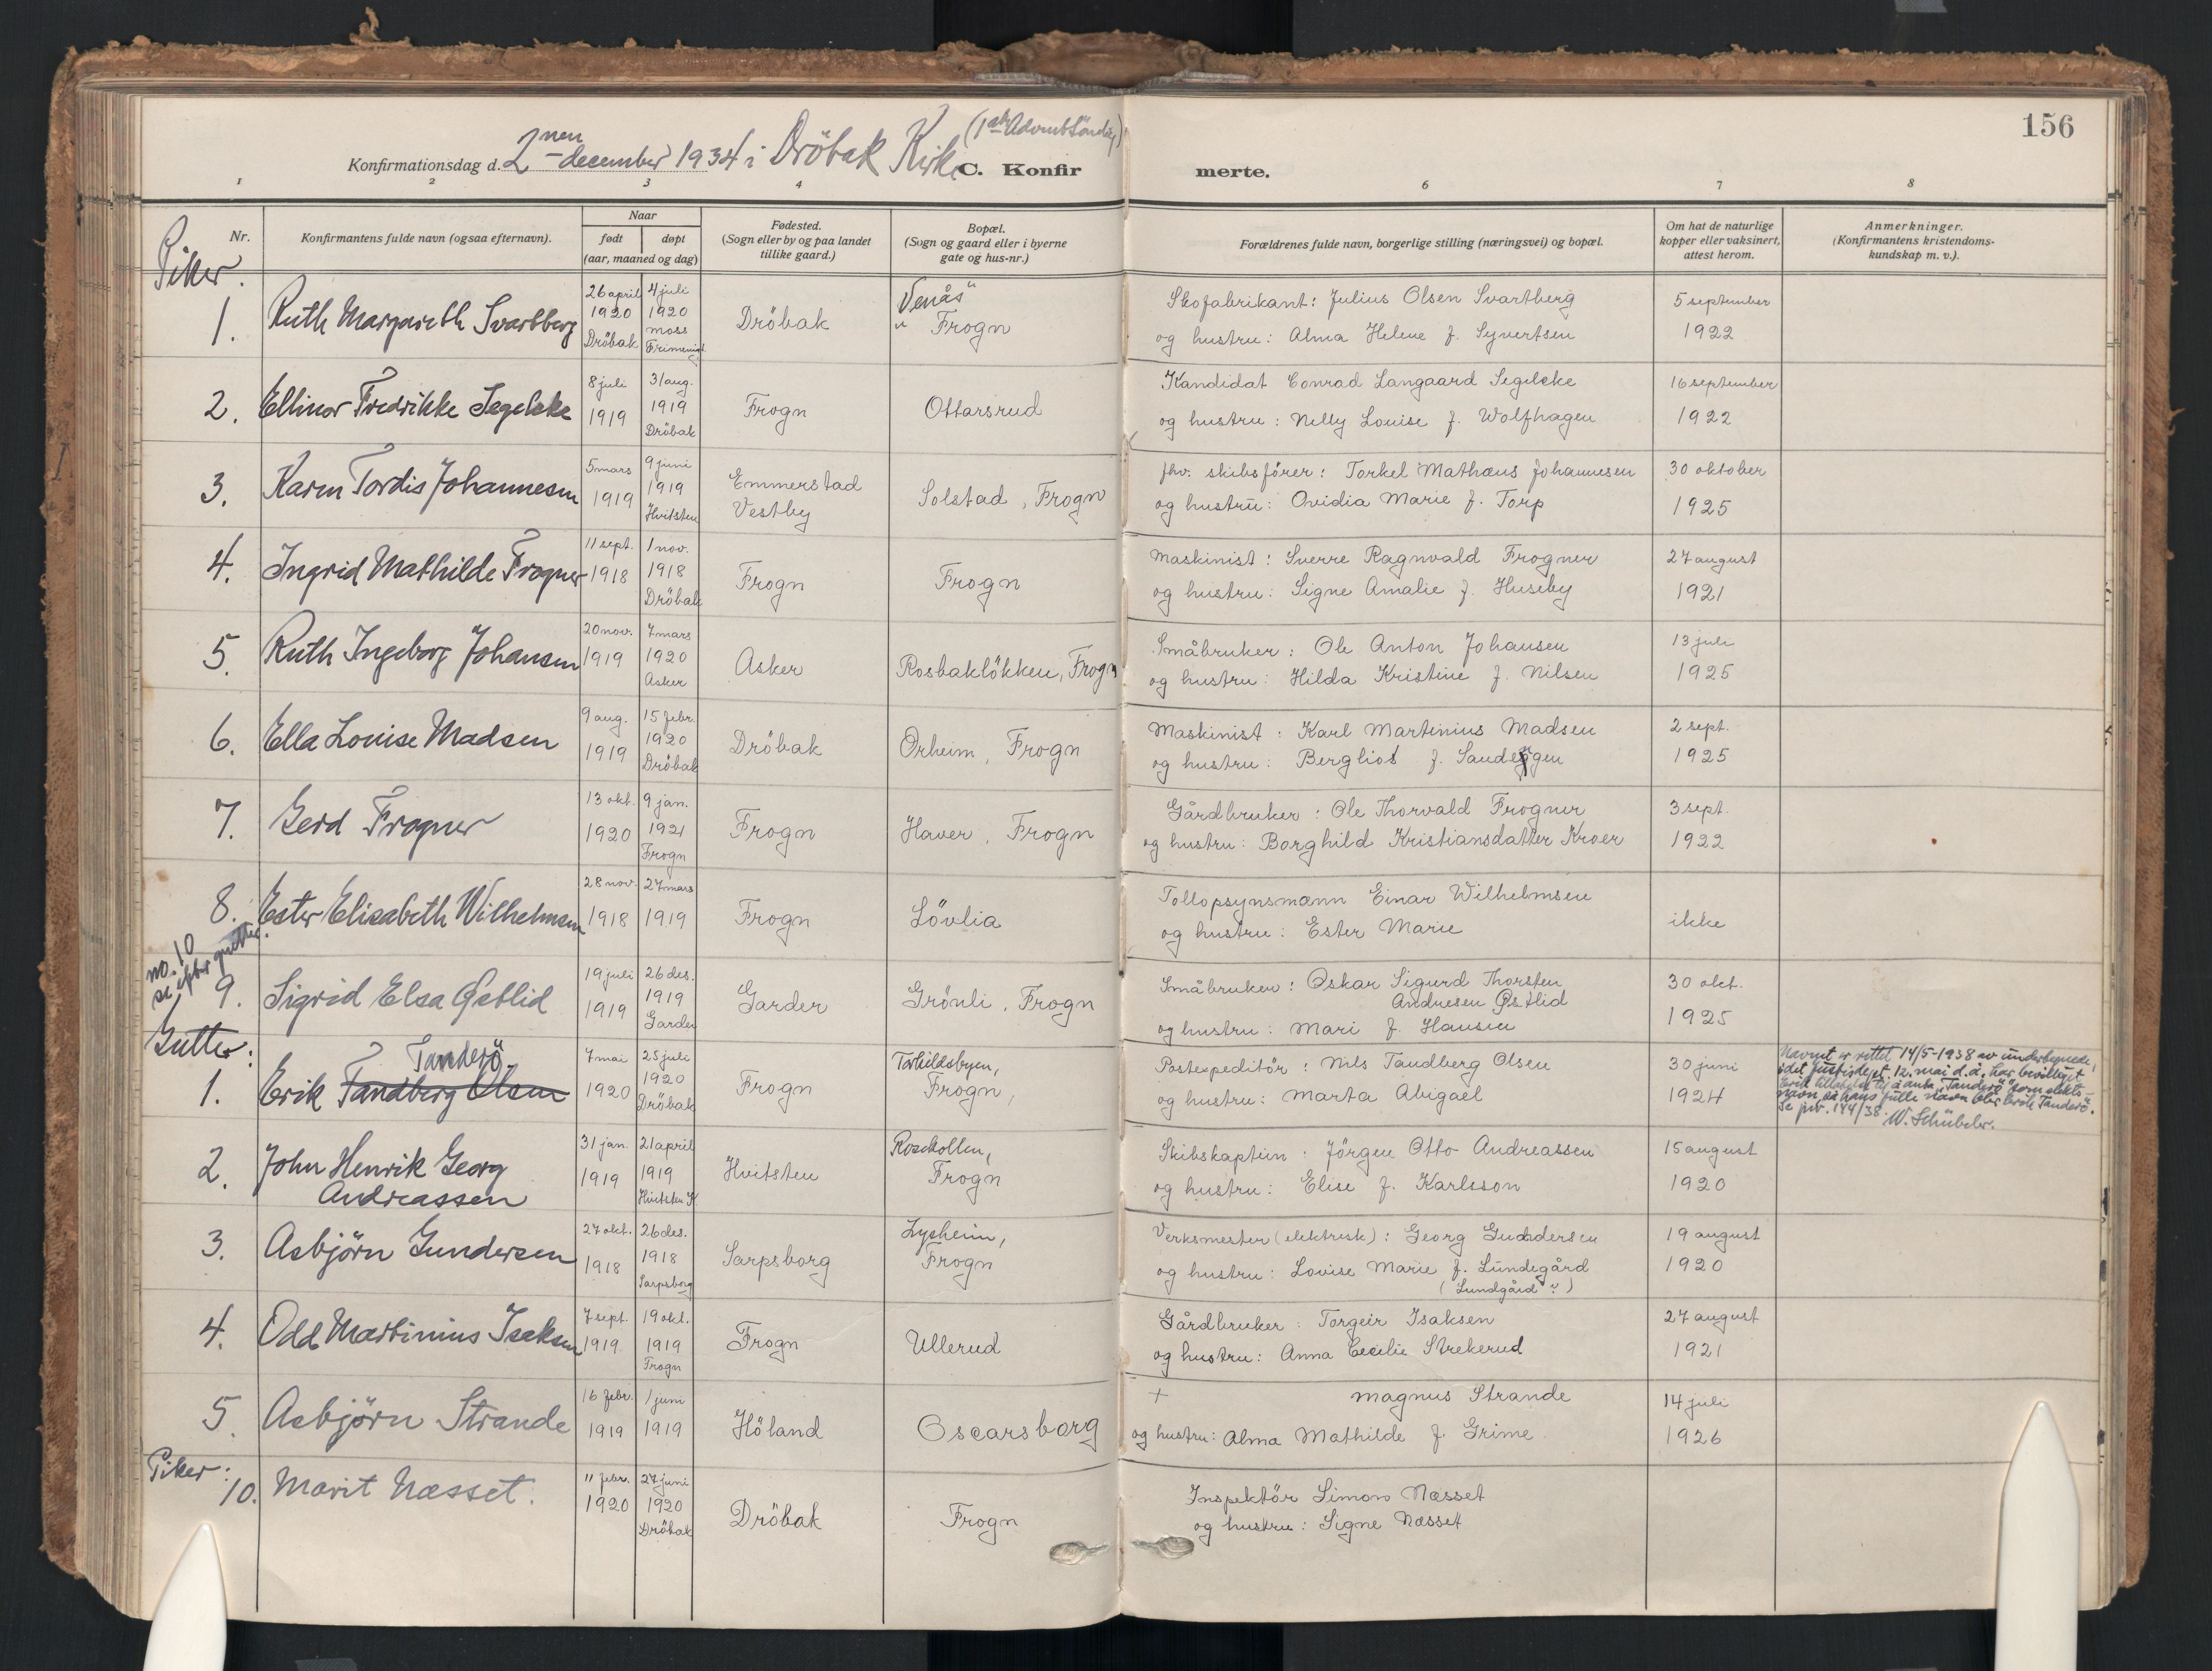 156
(1ste Adventsöndag)
Konfirmationsdag d. 2nen december 1934 i Dröbak Kirke C. Konfirmerte.
1 2 3 4 6 7 8
Nr.
Konfirmantens fulde navn (ogsaa efternavn).
Naar
født døpt
(aar, maaned og dag)
Fødested.
(Sogn eller by og paa landet
tillike gaard.)
Bopæl.
(Sogn og gaard eller i byerne
gate og hus-nr.)
Forældrenes fulde navn, borgerlige stilling (næringsvei) og bopæl.
Om hat de naturlige
kopper eller vaksinert,
attest herom.
Anmerkninger.
(Konfirmantens kristendoms-
kundskap m. v.).
Piker.
1. Ruth Margareth Svartberg
26 april 1920 Dröbak
4 juli 1920 Moss
Dröbak
Venås
" Frogn
Skofabrikant: Julius Olsen Svartberg
og hustru: Alma Helene f. Syvertsen
5 september
1922
2. Ellinor Fredrikke Segelcke
8 juli 1919
31 aug. 1919 Dröbak
Frogn
Ottarsrud
Kandidat Conrad Langaard Segelcke
og hustru: Nelly Louise f. Wolfhagen
16 september
1922
3. Karen Tordis Johannesen
5 mars 1919
9 juni 1919 Hvitsten
Emmerstad
Vestby
Solstad, Frogn
fhv. skibsförer: Torkel Mathæus Johannesen
og hustru: Ovidia Marie f. Torp
30 oktober
1925
4. Ingrid Mathilde Frogner
11 sept. 1918
1 nov. 1918 Dröbak
Frogn
Frogn
Maskinist: Sverre Ragnvald Frogner
og hustru: Signe Amalie f. Huseby
27 august
1921
5. Ruth Ingeborg Johansen
20 nov. 1919
7 mars 1920 Asker
Asker
Rosbaklökken, Frogn
Småbruker: Ole Anton Johansen
og hustru: Hilda Kristine f. Nilsen
13 juli
1925
6. Ella Louise Madsen
9 aug. 1919
15 febr. 1920 Dröbak
Dröbak
Orheim, Frogn
Maskinist: Karl Martinius Madsen
og hustru: Bergliot f.
2 sept.
1925
7. Gerd Frogner
13 okt. 1920
9 jan. 1921 Frogn
Frogn
Haver, Frogn
Gårdbruker: Ole Thorvald Frogner
og hustru: Borghild Kristiansdatter Kroer
3 sept.
1922
8. Ester Elisabeth Wilhelmsen
28 nov. 1918
27 mars 1919
Frogn
Lövlia
Tollopsynsmann Einar Wilhelmsen
og hustru: Ester Marie
ikke
no. 10
se efter gutter.
9. Sigrid Elsa Østlid
19 juli 1919
26 des. 1919 Garder
Garder
Grönli, Frogn
Småbruker: Oskar Sigurd Thorsten
Andresen Østlid
og hustru: Mari f. Hansen
30 okt.
1925
Gutter:
Tanderö
1. Erik Tandberg Olsen
7 mai 1920
25 juli 1920 Dröbak
Frogn
Torkildsbyen,
Frogn,
Postexpeditör: Nils Tandberg Olsen
og hustru: Marta Abigael
30 juni
1924
Navnet er rettet 14/5-1938 av undertegnede,
idet Justisdept. 12. mai d.å. har bevilliget
Erik tillatelse til å anta "Tanderö" som slekts-
navn, så hans fulle navn blir Erik Tanderö.
Se prv. 144/38. W. Schübeler.
2. John Henrik Georg
Andreassen
31 jan. 1919
21 april 1919 Hvitsten K
Hvitsten
Rosekollen,
Frogn
Skibskaptein: Jörgen Otto Andreassen
og hustru: Elise f. Karlsson
15 august
1920
3. Asbjörn Gundersen
27 okt. 1918
26 des. 1918 Sarpsborg
Sarpsborg
Lysheim,
Frogn
Verksmester (elektrisk): Georg Gundersen
og hustru: Lovise Marie f. Lundegård
(Lundgård?)
19 august
1920
4. Odd Martinius Isaksen
7 sept. 1919
19 okt. 1919 Frogn
Frogn
Ullerud
Gårdbruker: Torgeir Isaksen
og hustru: Anna Cecilie Strekerud
27 august
1921
5. Asbjörn Strande
16 febr. 1919
1 juni 1919
Höland
Oscarsborg
+ Magnus Strande
og hustru: Alma Mathilde f. Grime
14 juli
1926
Piker:
10. Marit Næsset.
11 febr. 1920
27 juni 1920 Dröbak
Dröbak
Frogn
Inspektör Simon Næsset
og hustru: Signe Næsset